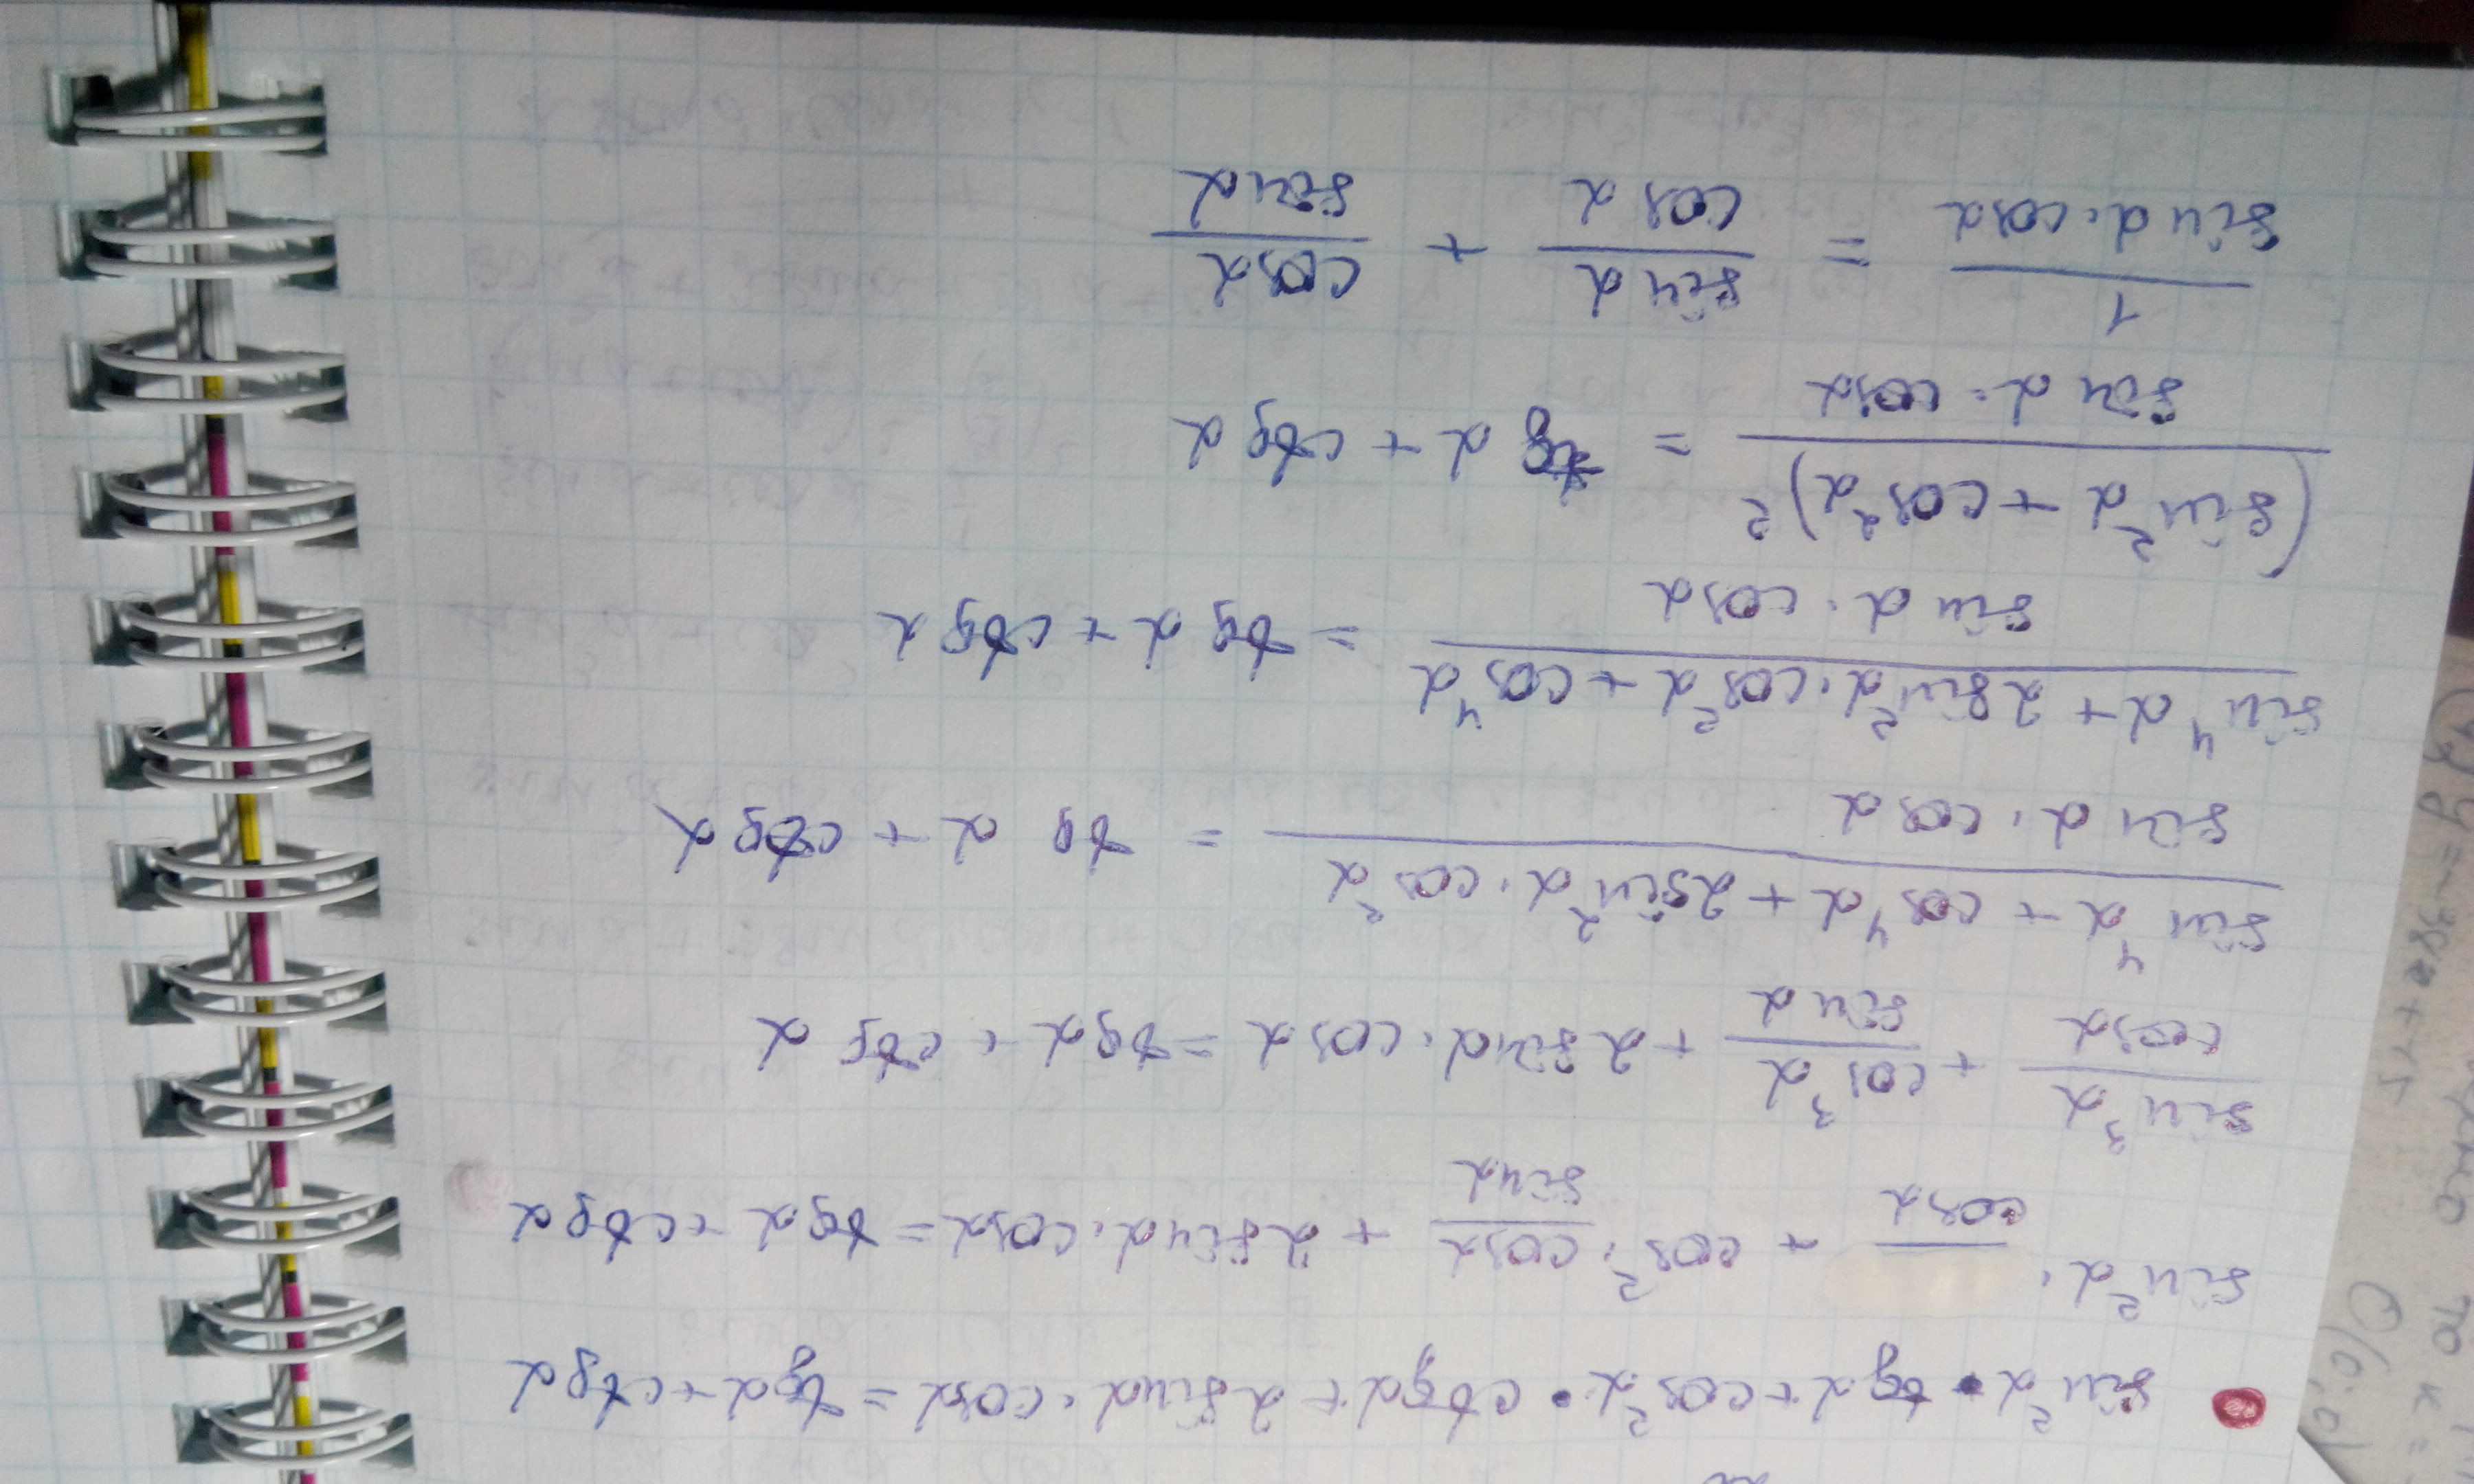 sin²α • tgα + cos²α • ctgα + 2sinα · cosα = tgα + ctgα
sin²α · —/cosα + cos² · cosα/sinα + 2sinα · cosα = tgα + ctgα
sin³α/cosα + cos³α/sinα + 2sinα · cosα = tgα + ctgα
(sin⁴α + cos⁴α + 2sin²α · cos²α)/(sinα · cosα) = tgα + ctgα
(sin⁴α + 2sin²α · cos²α + cos⁴α)/(sinα · cosα) = tgα + ctgα
(sin²α + cos²α)²/(sinα · cosα) = tgα + ctgα
1/(sinα · cosα) = sinα/cosα + cosα/sinα